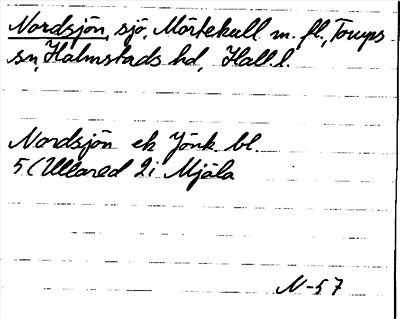 Nordsjön, sjö, Mörtekull m. fl., Torups
sn, Halmstads hd, Hall l.
Nordsjön ek Jönk bl.
5 (Ullared 2i Mjäla
N-57